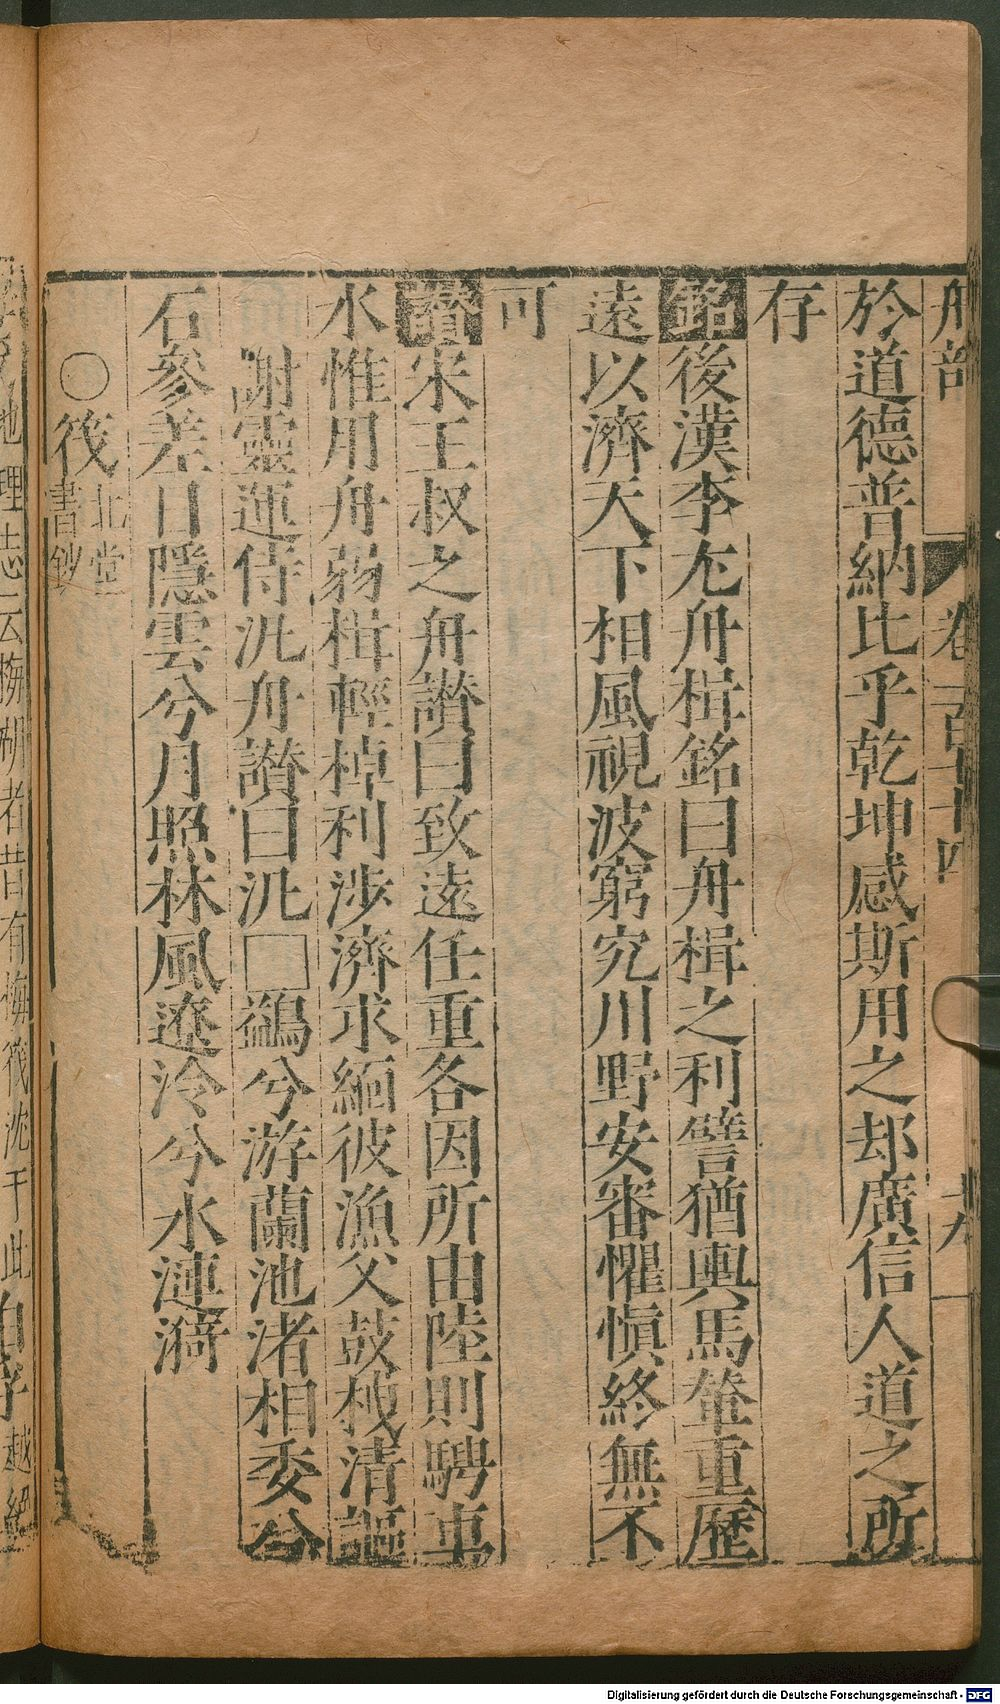 舟部
卷一百七十四
十九
於道德普納比乎乾坤感斯用之却廣信人道之所
存
銘後漢李尤舟楫銘曰舟楫之利譬猶輿馬輦重歷
遠以濟天下相風視波窮究川野安審懼愼終無不
可
贊宋王叔之舟讃曰致遠任重各因所由陸則騁車
水惟用舟弱楫輕棹利涉濟求緬彼漁父鼓栧清謳
謝靈運侍汎舟讃曰汎□鷁兮游蘭池渚相委兮
石參差日隱雲兮月照林風遼泠兮水漣漪
○筏北堂
書鈔
地理志云梅湖者昔有梅筏沈于此
越絕
Digitalisierung gefördert durch die Deutsche Forschungsgemeinschaft - DFG